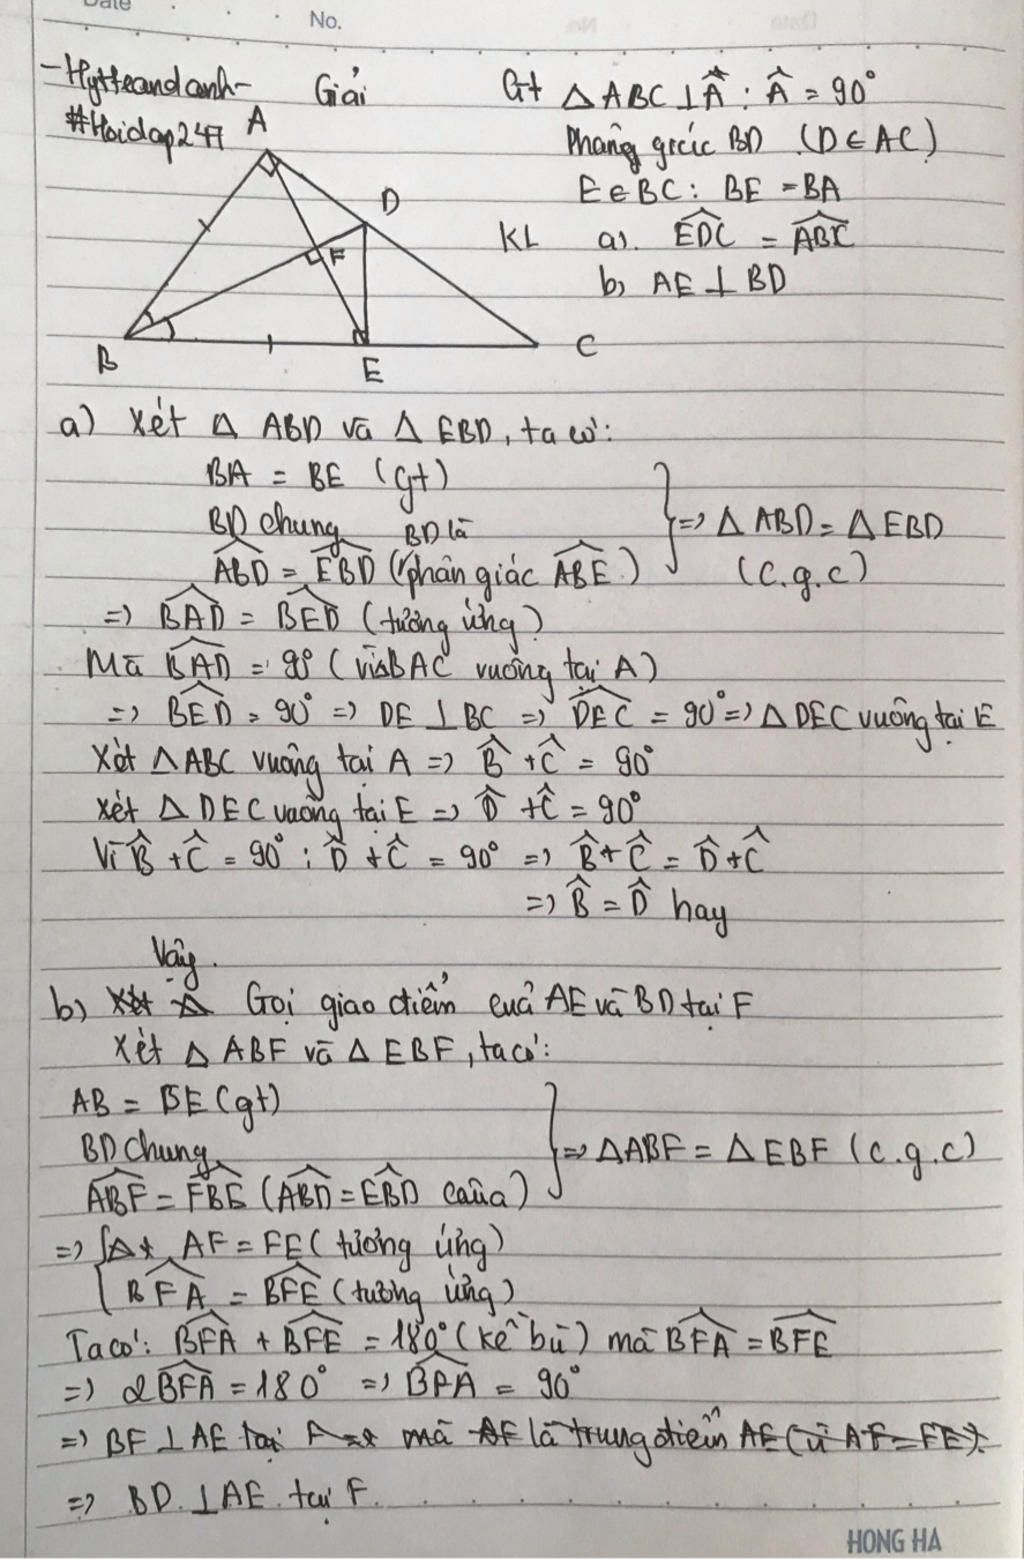 Date
No.
-Hytteandanh-
#Hoidap247
Giải
Gt △ABC⊥Â : Â = 90°
Phâng giác BD (D∈AC)
E∈BC : BE = BA
KL a). EDC = ABC
b, AE ⊥ BD
A
D
F
B
E
C
a) Xét △ ABD và △ EBD, ta có:
BA = BE (gt)
BD chung
BD là
ABD = EBD (phân giác ABE)
=> △ ABD = △ EBD
(c.g.c)
=> BAD = BED (tương ứng)
Mà BAD = 90° (vì △BAC vuông tại A)
=> BED = 90° => DE ⊥ BC => DEC = 90° => △ DEC vuông tại E
Xét △ABC vuông tại A => B̂ + Ĉ = 90°
Xét △ DEC vuông tại E => D̂ + Ĉ = 90°
Vì B̂ + Ĉ = 90° ; D̂ + Ĉ = 90° => B̂ + Ĉ = D̂ + Ĉ
=> B̂ = D̂ hay
Vậy.
b) Xét △ Gọi giao điểm của AE và BD tại F
Xét △ ABF và △ EBF, ta có:
AB = BE (gt)
BD chung
ABF = FBE (ABD = EBD câu a)
=> △ABF = △ EBF (c.g.c)
=> AF = FE (tương ứng)
BFA = BFE (tương ứng)
Ta có: BFA + BFE = 180° (kề bù) mà BFA = BFE
=> 2BFA = 180° => BFA = 90°
=> BF ⊥ AE tại F mà AF là trung điểm AE (vì AF = FE).
=> BD ⊥ AE tại F.
HONG HA